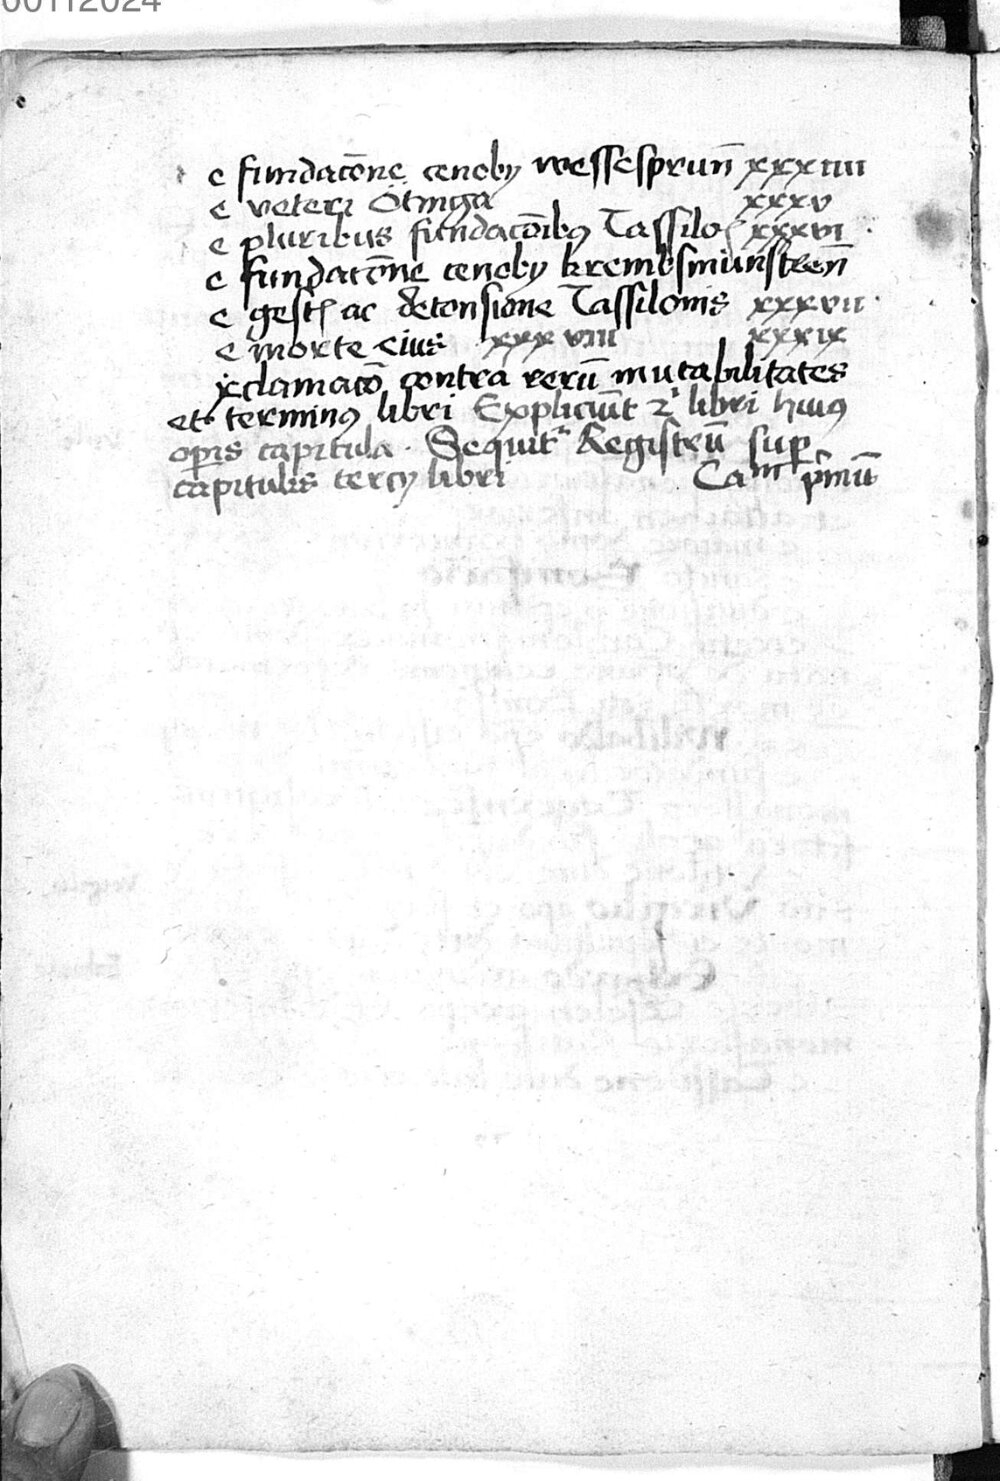 00112024
e fundacōne cenoby wessesprun̄ xxxiiii
e veteri Ötinga xxxv
e pluribus fundacōibꝯ Tassiloꝭ xxxvi
e fundacōne cenoby krembsmunstren̄
e gestꝭ ac detonsione Tassilonis xxxvii
e morte eius xxxviii xxxix
xclamacō contra rerū mutabilitates
et terminꝯ libri Expliciūt 2ⁱ libri huiꝯ
opīs capitula · Sequitʳ Registrū suꝑ
capitulis tercy libri Caᵐ pᵐū